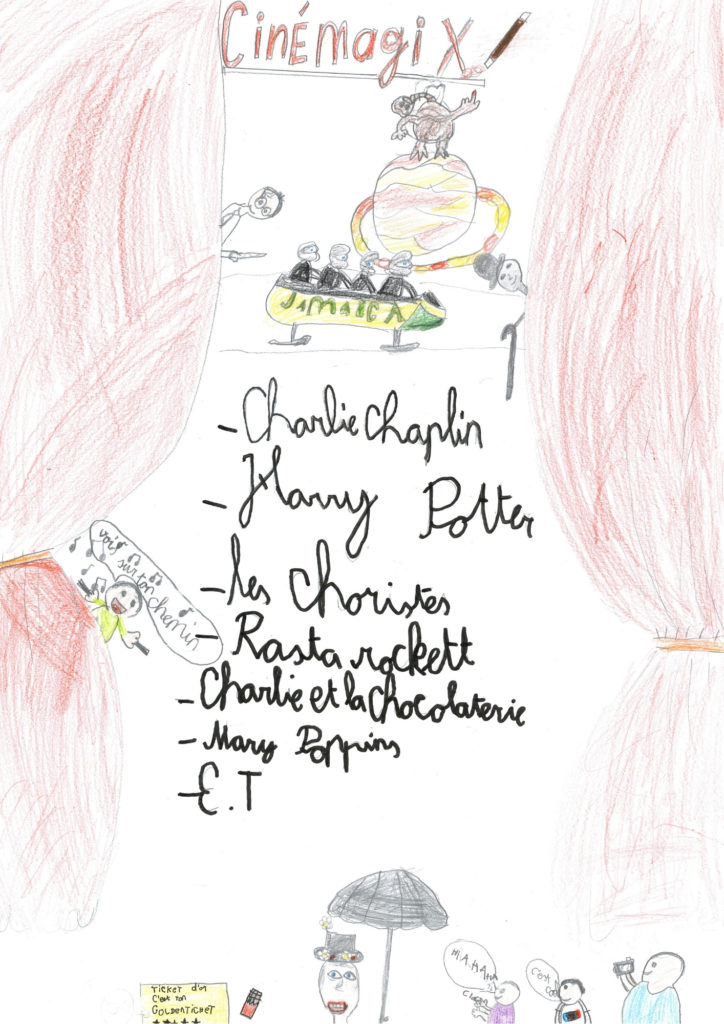 CinÉmagiX
JAMAICA
- Charlie Chaplin
- Harry Potter
- les Choristes
- Rasta rockett
- Charlie et la Chocolaterie
- Mary Poppins
- E.T
vois
sur ton
chemin
TICKET d'or
C'est ton
GOLDENTICHET